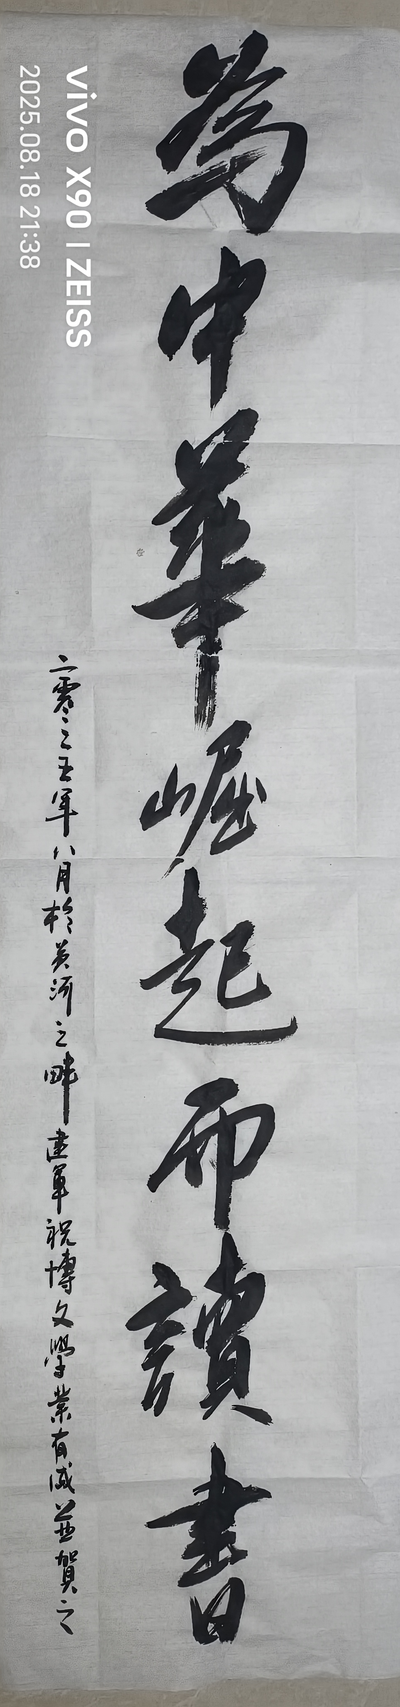 為中華崛起而讀書
二零二五年八月於黃河之畔建軍祝博文學業有成並賀之
vivo X90 | ZEISS
2025.08.18 21:38